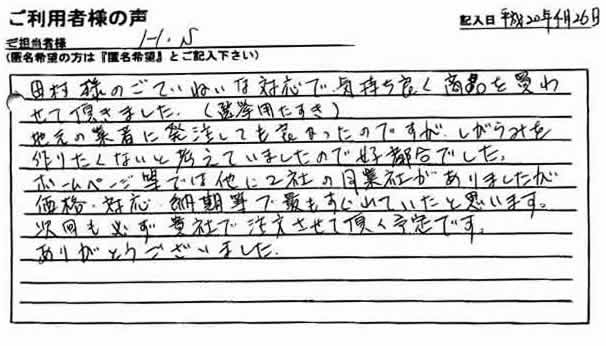 ご利用者様の声
記入日 平成20年4月26日
ご担当者様 H.S
(匿名希望の方は『匿名希望』とご記入下さい)
田村様のごていねいな対応で気持ち良く商品を買わ
せて頂きました。(選挙用たすき)
地元の業者に発注しても良かったのですが、しがらみを
作りたくないと考えていましたので好都合でした。
ホームページ等では他に2社の同業社がありましたが
価格・対応・納期等で最もすぐれていたと思います。
次回も必ず貴社で注文させて頂く予定です。
ありがとうございました。